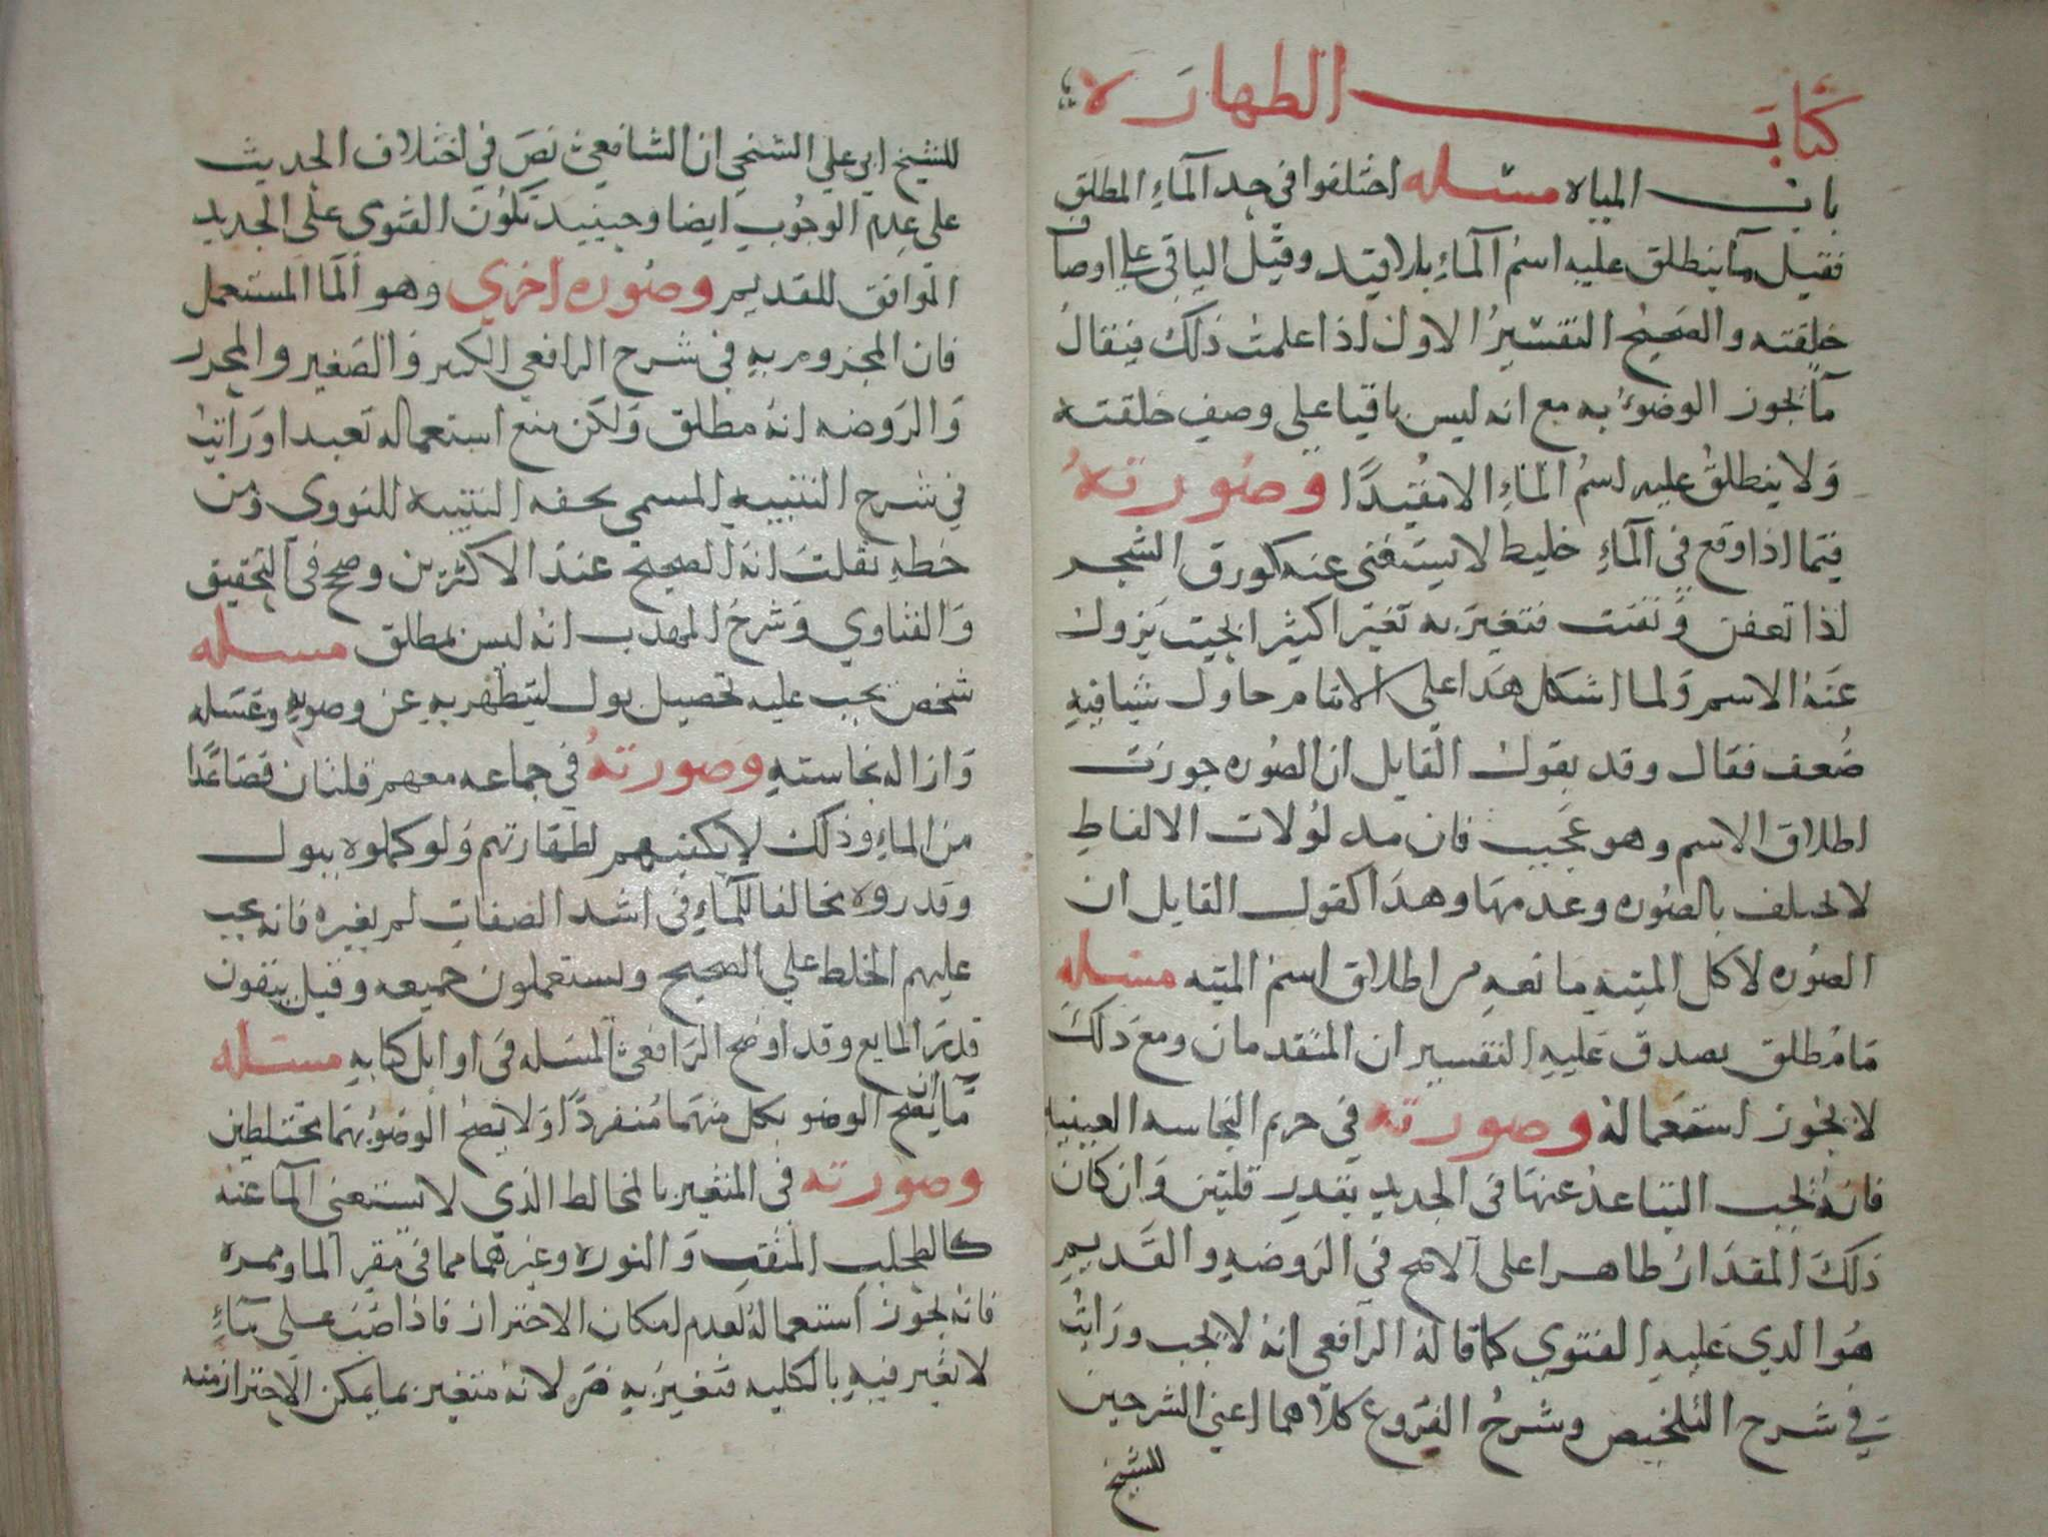 كتاب الطهارة
باب المياه مسله اختلفوا في حد الماء المطلق
فقيل ما ينطلق عليه اسم الماء بلا قيد وقيل الباقي على اوصاف
خلقته والصحيح التفسير الاول اذا علمت ذلك فيقال
ما يجوز الوضوء به مع انه ليس باقيا على وصف خلقته
ولا ينطلق عليه اسم الماء الا مقيدا وصورته
فيما اذا وقع في الماء خليط لا يستغنى عنه كورق الشجر
اذا تعفن وتفتت فتغير به تغيرا كثيرا بحيث يزول
عنه الاسم ولما اشكل هذا على الامام حاول شيا فيه
ضعف فقال وقد يقول القايل ان الصوره جوزت
اطلاق الاسم وهو عجيب فان مدلولات الالفاظ
لا تختلف بالصوره وعدمها وهذا كقول القايل ان
الصوره لاكل الميته مانعه من اطلاق اسم الميته مسله
ما مطلق يصدق عليه التفسيران المتقدمان ومع ذلك
لا يجوز استعماله وصورته في حريم النجاسه العينيه
فانه يجب التباعد عنها في الجديد بقدر قلتين وان كان
ذلك المقدار طاهرا على الاصح في الروضه والقديم
هو الذي عليه الفتوى كما قاله الرافعي انه لا يجب ورايت
في شرح التلخيص وشرح الفروع كلاهما اعني الشرحين
للشيخ
للشيخ ابي علي السنجي ان الشافعي نص في اختلاف الحديث
على عدم الوجوب ايضا وحينيد تكون الفتوى على الجديد
الموافق للقديم وصوره اخرى وهو الما المستعمل
فان المجزوم به في شرح الرافعي الكبير والصغير والمحرر
والروضه انه مطلق ولكن منع استعماله تعبدا ورايت
في شرح التنبيه المسمى بحفه التنبيه للنووي ومن
خطه نقلت انه الصحيح عند الاكثرين وصحح في التحقيق
والفتاوي وشرح المهذب انه ليس بمطلق مسله
شخص يجب عليه تحصيل بول ليتطهر به عن وضويه وغسله
وازاله نجاسته وصورته في جماعه معهم قلتان فصاعدا
من الماء وذلك لا يكفيهم لطهارتهم ولو كملوه ببول
وقدروه مخالفا للماء في اشد الصفات لم يغيره فانه يجب
عليهم الخلط على الصحيح ويستعملون جميعه وقيل يبقون
قدر المايع وقد اوضح الرافعي المسله في اوايل كتابه مسله
ماان يصح الوضو بكل منهما منفردا ولا يصح الوضو بهما مختلطين
وصورته في المتغير بالمخالط الذي لا يستغنى الما عنه
كالطحلب المتفتت والنوره وغيرهما مما في مقر الما وممره
فانه يجوز استعماله لعدم امكان الاحتراز فاذا صب على ماء
لا تغير فيه بالكليه فتغير به ضر لانه متغير بما يمكن الاحتراز منه